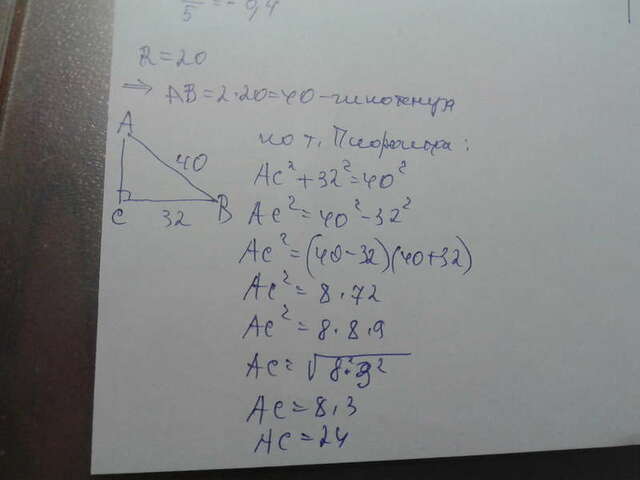 5 = -0,4
R = 20
⇒ AB = 2·20 = 40 - гипотенуза
по т. Пифагора:
A
40
C 32 B
AC² + 32² = 40²
AC² = 40² - 32²
AC² = (40-32)(40+32)
AC² = 8·72
AC² = 8·8·9
AC = √8²·3²
AC = 8·3
AC = 24